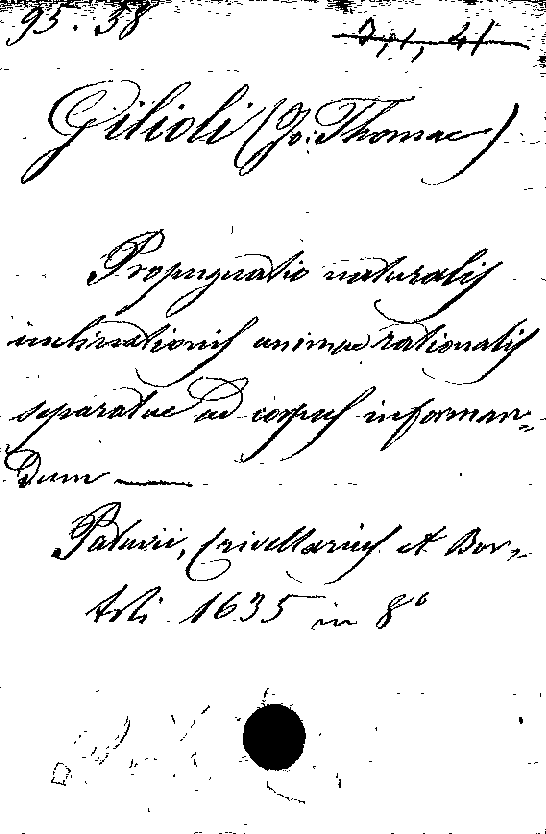 95. 38
Gilioli (Jo: Thomae)
Propugnatio naturalis
inclinationis animae rationalis
separatae ad corpus informan-
dum
Patavii, Crivellarius et Bor-
toli 1635 in 8°